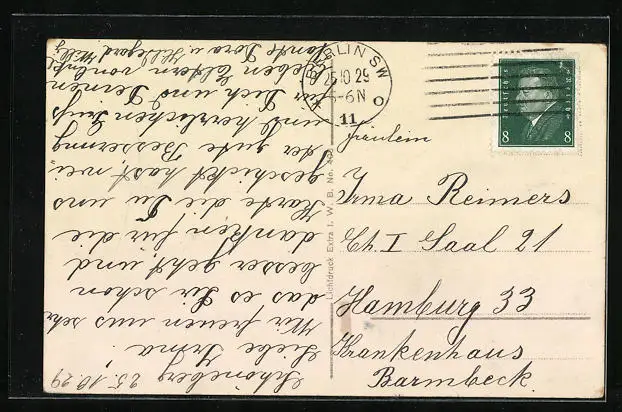 Schöneberg 25.10.29
Liebe Irma.
Wir freuen uns sehr
das es Dir schon
besser geht, und
danken für die
Karte die Du uns
geschickt hast, neu,
der gute Besserung
und herzlichen Gruß
für Dich und Deinen
lieben Eltern von Onkel
Tante Dora u. Hildegard Willy
BERLIN SW
25.10.29
5-6N
11
8 8
Fräulein
Irma Reimers
Ch. I Saal 21
Hamburg 33
Krankenhaus
Barmbeck.
Lichtdruck Extra I. W. B. No.